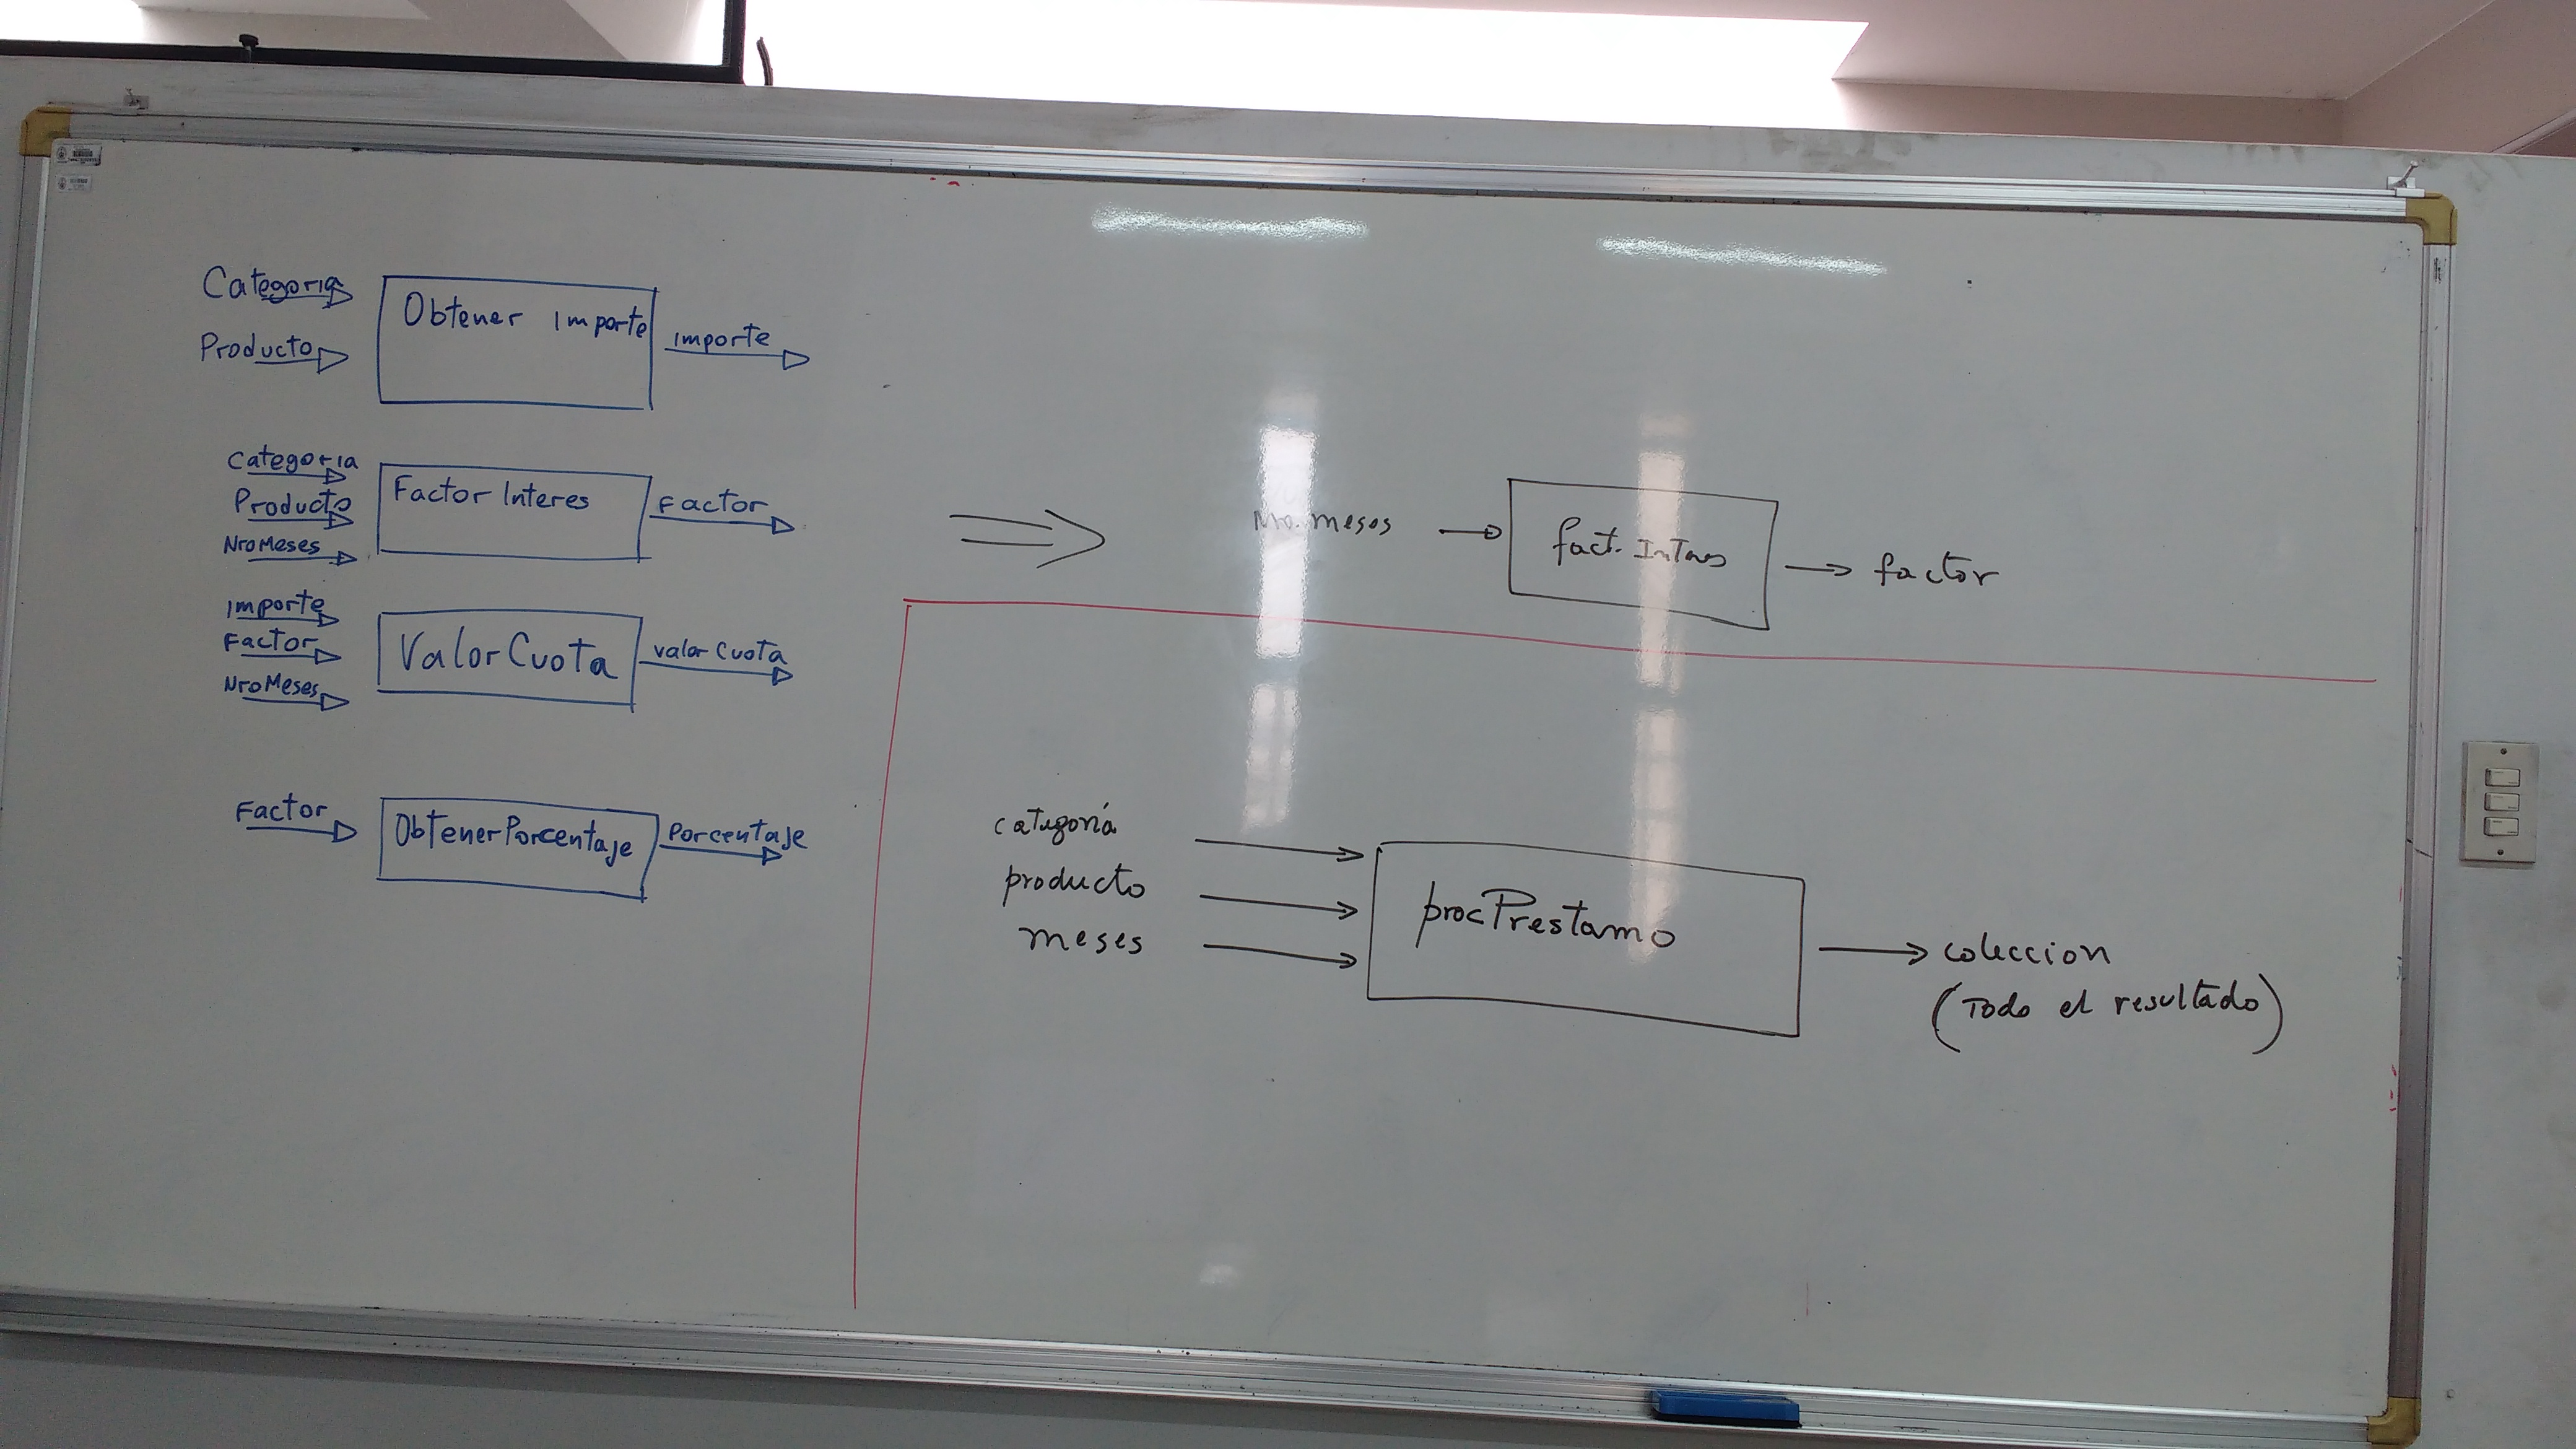 Categoria
Producto
Obtener Importe
Importe
categoria
Producto
NroMeses
Factor Interes
Factor
Importe
Factor
NroMeses
ValorCuota
valorCuota
Factor
ObtenerPorcentaje
Porcentaje
Nro. meses
fact. Interes
factor
categoría
producto
meses
procPrestamo
coleccion
(Todo el resultado)